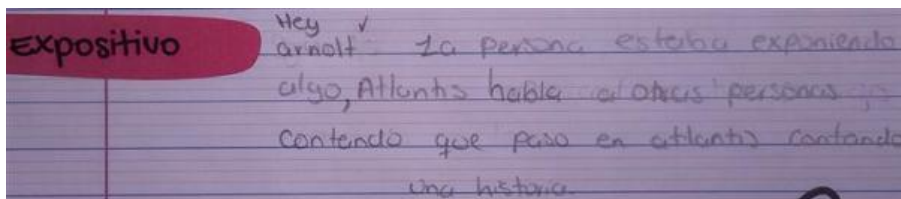 Expositivo
Hey
arnolt: La persona estaba exponiendo
algo, Atlantis habla a otras personas
contando que paso en atlantis contando
una historia.